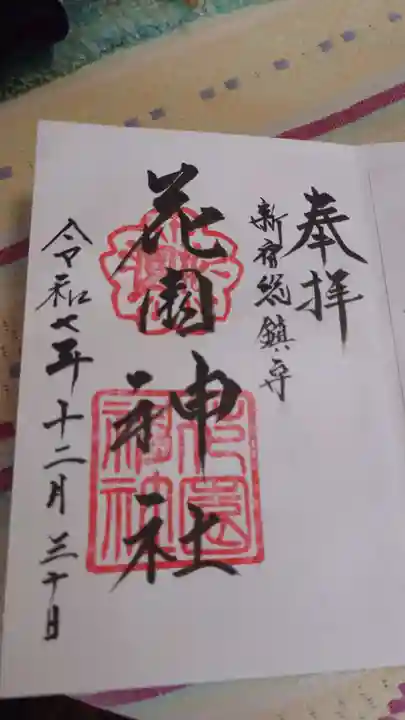 奉拝
新宿総鎮守
花園神社
花園神社
令和七年十二月三十日